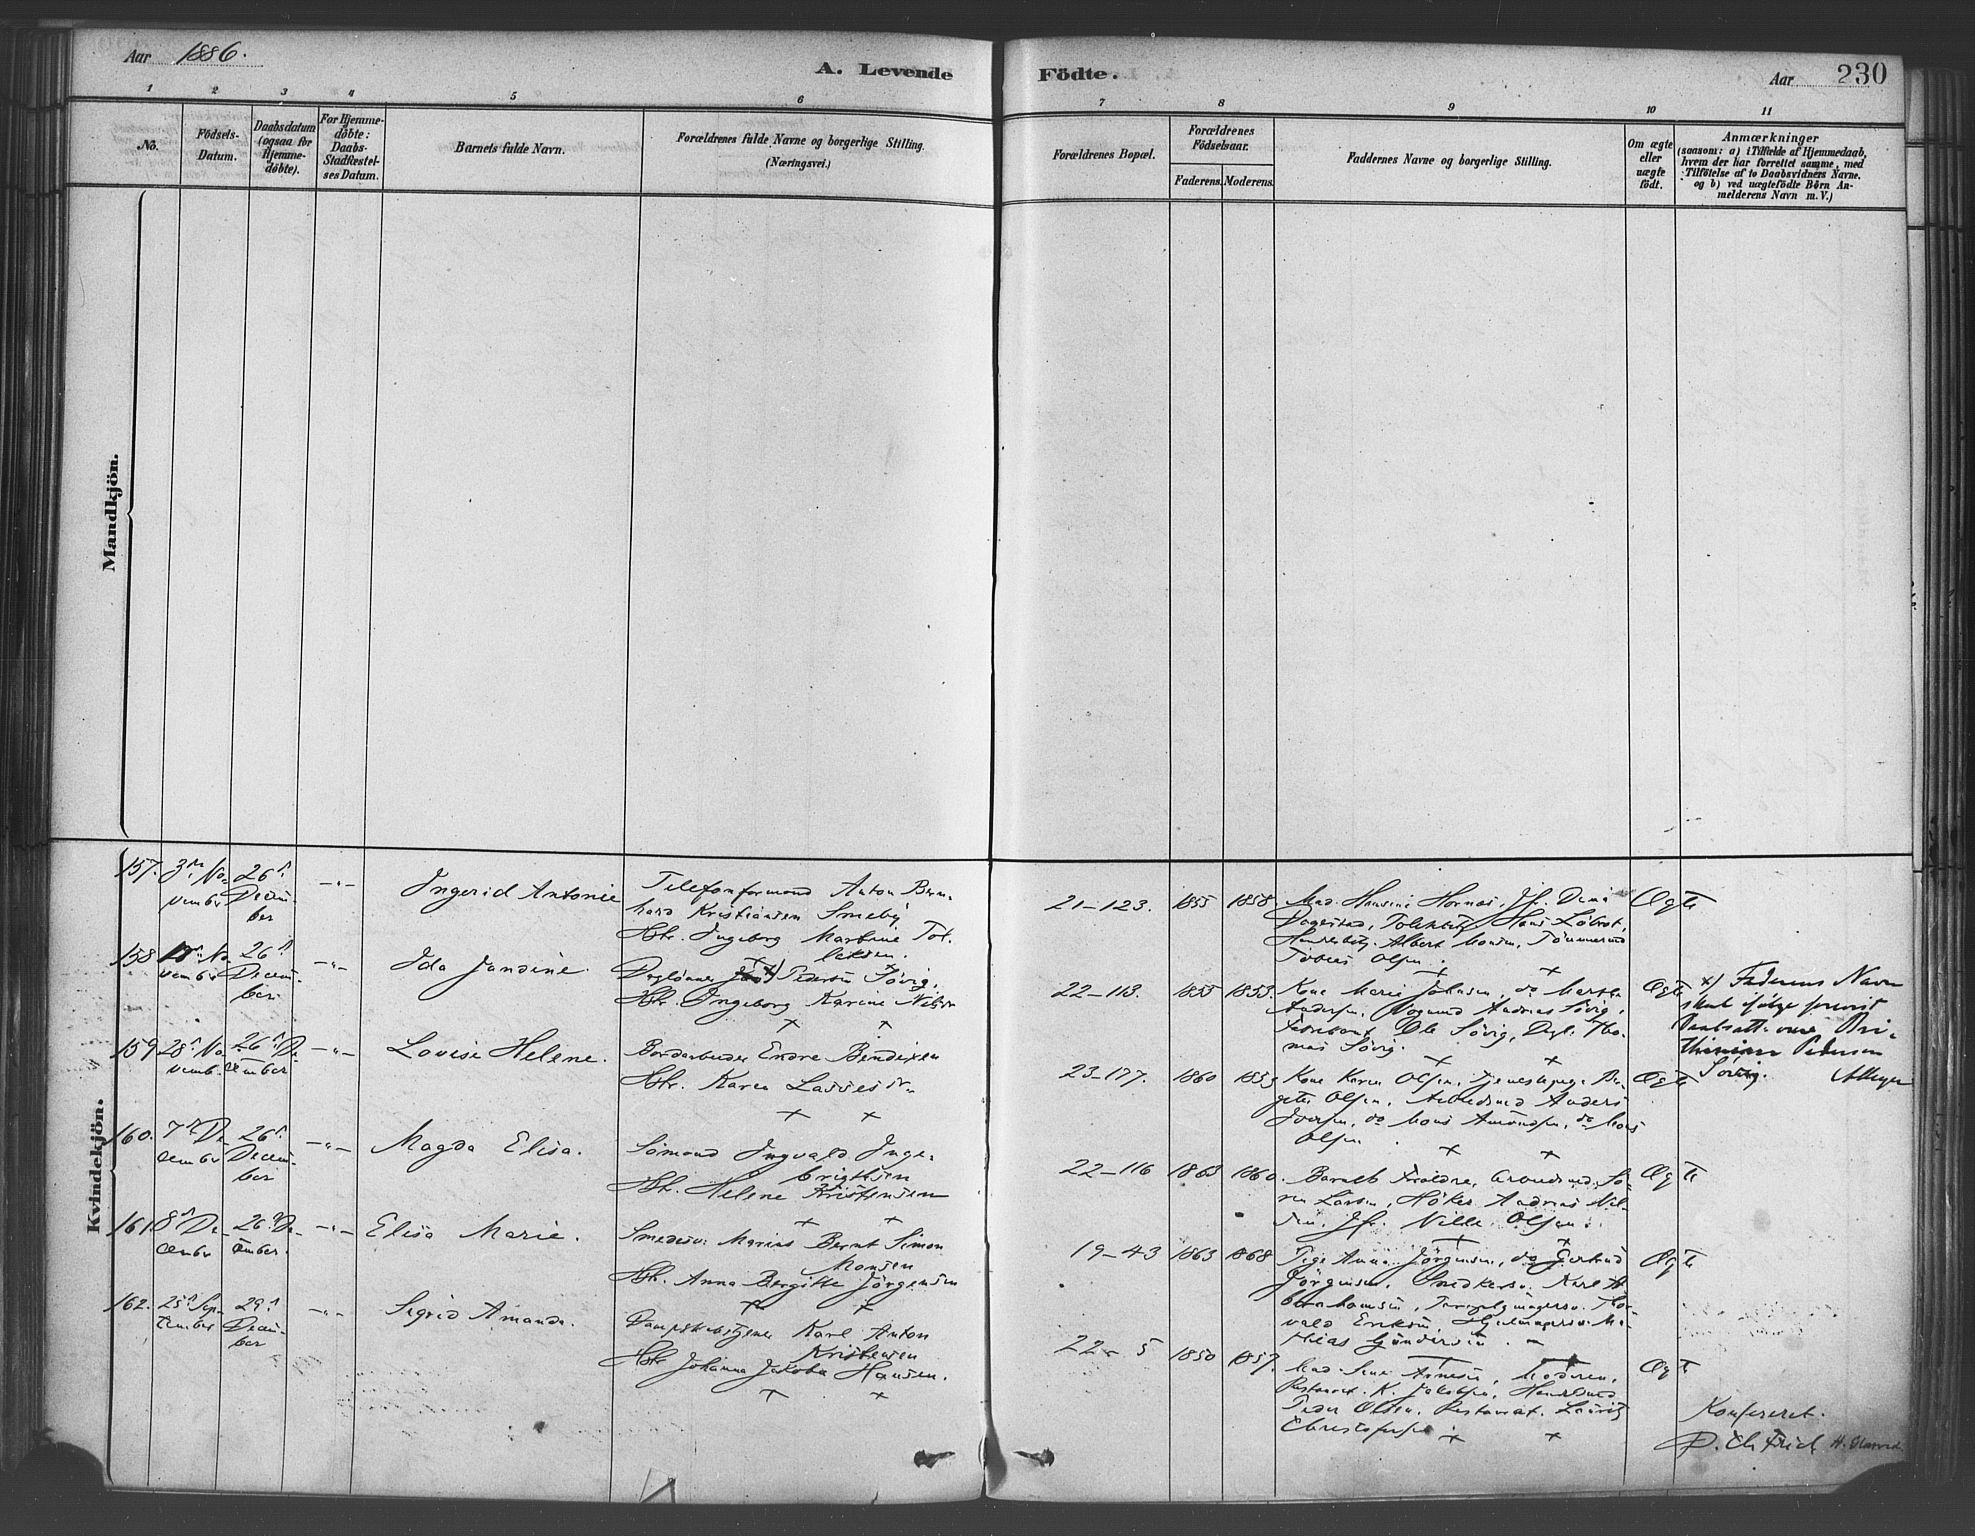 Aar 1886.
A. Levende
Födte.
Aar
230
1 2 3 4 5 6
7 8 9 10 11
No.
Födsels-
Datum.
Daabsdatum
(ogsaa for
Hjemme-
døbte).
For Hjemme-
døbte:
Daabs-
Stadfæstel-
ses Datum.
Barnets fulde Navn.
Forældrenes fulde Navne og borgerlige Stilling.
(Næringsvei.)
Forældrenes Bopæl.
Forældrenes
Födselsaar.
Faderens.
Moderens.
Faddernes Navne og borgerlige Stilling.
Om ægte
eller
uægte
födt.
Anmærkninger
(saasom: a) i Tilfælde af Hjemmedaab,
hvem der har forrettet samme, med
Tilföielse af to Daabsvidners Navne.
og b) ved uægtefödte Börn An-
melderens Navn m. V.)
Mandkjön.
Kvindekjön.
157. 3die No-
vember
26d
Decem-
ber
—"—
Ingerid Antonie
Telefonformand Anton Bern-
hard Kristiansen Smeby
Hstr. Ingeborg Martine Tol-
lefsen.
21–123.
1855
1858.
Mad. Hansine Hornæs, Jf. Dina
Dagestad, Toldbetj. Hans
Handelsbetj. Albert Monsen, Tömmermd
Tobias Olsen.
Ægte
158 No-
vember
26d
Decem-
ber.
—"—
Ida Jandine.
Daglönner x) Pedersen Sövig,
Hstr. Ingeborg Karine Nilsen
22–113.
1855
1853.
Kone Marie Johnsen, do Martha
Andersen, Andreas Sövig,
Ole Sövig, Dagl. Tho-
mas Sövig.
Ægte
x) Faderens Navn
skal ifølge forevist
Daabsatt. være
Pedersen
Sövig.
159 28d No-
vemb.
26d De-
cember
—"—
Lovise Helene.
Bordarbeider Endre Bendixen
Hstr. Karen Lassesdr.
23–177.
1860
1859
Kone Karen Olsen, Tjenestepige Ber-
gitte Olsen, Arbeidsmd Anders
Iversen, do Mons Amundsen, do Mons
Olsen
Ægte
160. 7d De-
cember
26d
Decem-
ber
—"—
Magda Elisa.
Sömand Ingvald Inge-
brigtsen
Hstr. Helene Kristensen
22–116
1863
1860.
Arbeidsmd. Sö-
ren Larsen, Höker Andreas Nil-
sen, Jf. Nille Olsen.
Ægte
161. 8d De-
cember
26d De-
cember.
—"—
Elisa Marie.
Smedesv. Marius Bernt Simon
Monsen
Hstr. Anna Bergitte Jörgensen
19–43
1863
1868
Pige Anna Jörgensen, do Gertrud
Jörgensen, Snedkersv. Karl A
Thor-
vald Eriksen, Hjulmagersv. Ma-
thias Gundersen.
Ægte
162. 25d Sep-
tember
29d
Decem-
ber
—"—
Sigrid Amanda.
Dampskibstjener Karl Anton
Kristensen
Hstr Johanna Jakoba Hansen.
22–5
1850
1857.
Mad. Moderen,
Restaurat. K. Jakobsen, Handelsmd
Peder Olsen, Restaurat. Lauritz
Christophersen
Ægte
Konfereret.
D. Ch. Frich